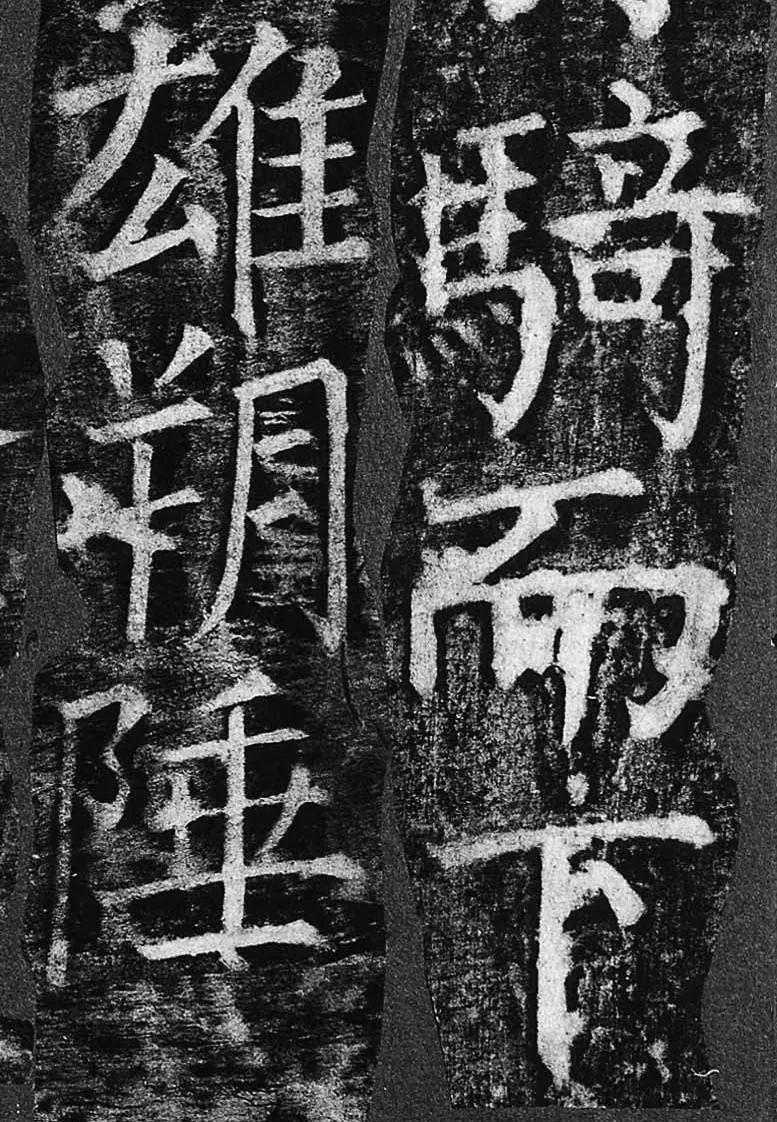 騎而下
雄朔陲